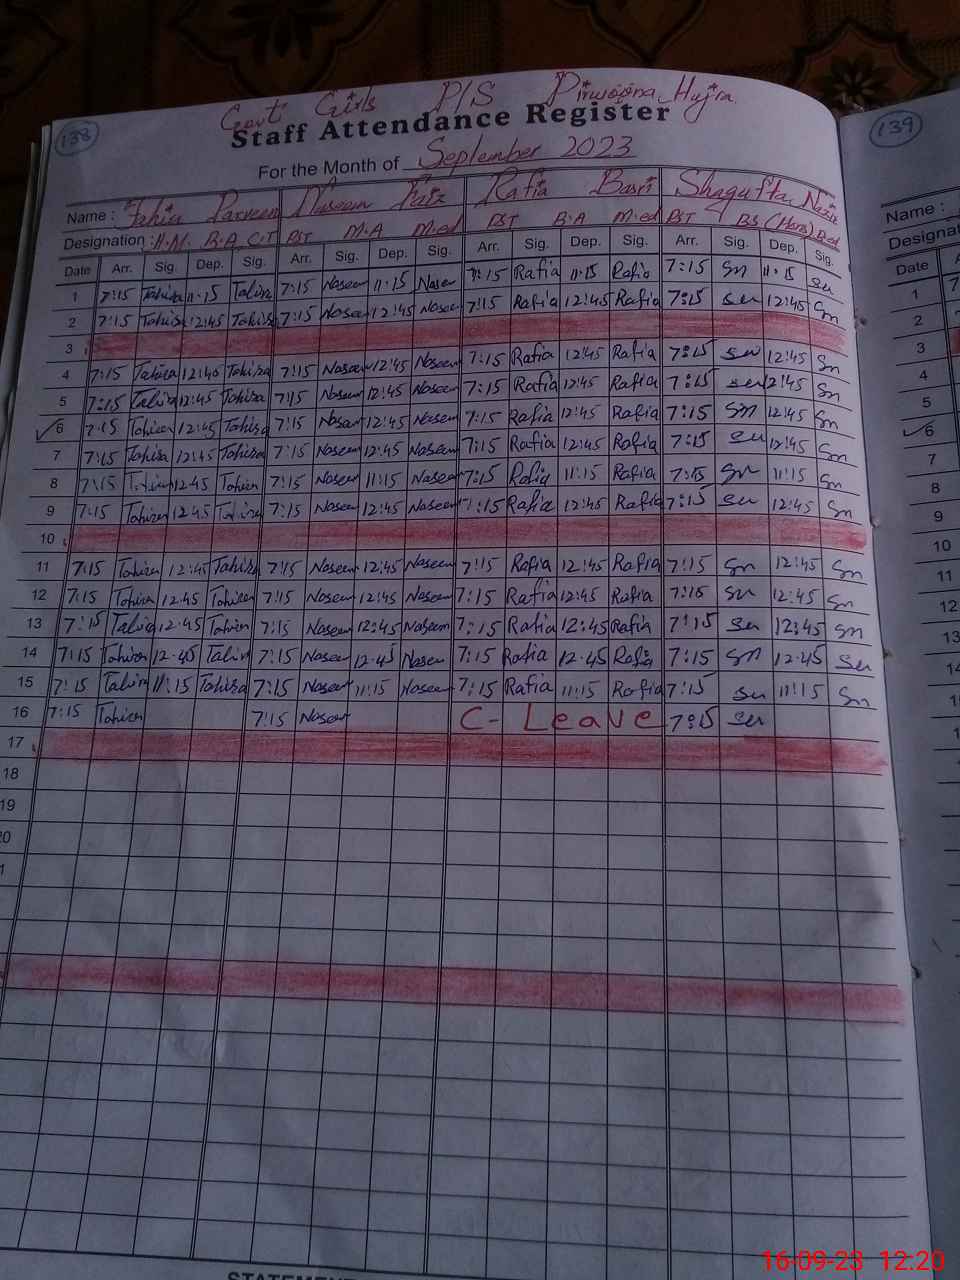 138
139
Govt Girls P/S Pirwojna Hujra
Staff Attendance Register
For the Month of September 2023
Name : Tahira Parveen Naseem Faiz Rafia Basri Shagufta Nazir
Name :
Designation : H.M. B.A C.T PST M.A M.ed PST B.A M.ed PST BS (Hons) B.ed
Designat
Date Arr. Sig. Dep. Sig. Arr. Sig. Dep. Sig. Arr. Sig. Dep. Sig. Arr. Sig. Dep. Sig.
Date
1 7:15 Tahira 11:15 Tahira 7:15 Naseem 11:15 Naseem 7:15 Rafia 11:15 Rafia 7:15 Sn 11:15 Sn
2 7:15 Tahira 12:45 Tahira 7:15 Naseem 12:45 Naseem 7:15 Rafia 12:45 Rafia 7:15 Sn 12:45 Sn
3
4 7:15 Tahira 12:45 Tahira 7:15 Naseem 12:45 Naseem 7:15 Rafia 12:45 Rafia 7:15 Sn 12:45 Sn
5 7:15 Tahira 12:45 Tahira 7:15 Naseem 12:45 Naseem 7:15 Rafia 12:45 Rafia 7:15 Sn 12:45 Sn
6 7:15 Tahira 12:45 Tahira 7:15 Naseem 12:45 Naseem 7:15 Rafia 12:45 Rafia 7:15 Sn 12:45 Sn
7 7:15 Tahira 12:45 Tahira 7:15 Naseem 12:45 Naseem 7:15 Rafia 12:45 Rafia 7:15 Sn 12:45 Sn
8 7:15 Tahira 12:45 Tahira 7:15 Naseem 11:15 Naseem 7:15 Rafia 11:15 Rafia 7:15 Sn 11:15 Sn
9 7:15 Tahira 12:45 Tahira 7:15 Naseem 12:45 Naseem 7:15 Rafia 12:45 Rafia 7:15 Sn 12:45 Sn
10
11 7:15 Tahira 12:45 Tahira 7:15 Naseem 12:45 Naseem 7:15 Rafia 12:45 Rafia 7:15 Sn 12:45 Sn
12 7:15 Tahira 12:45 Tahira 7:15 Naseem 12:45 Naseem 7:15 Rafia 12:45 Rafia 7:15 Sn 12:45 Sn
13 7:15 Tahira 12:45 Tahira 7:15 Naseem 12:45 Naseem 7:15 Rafia 12:45 Rafia 7:15 Sn 12:45 Sn
14 7:15 Tahira 12:45 Tahira 7:15 Naseem 12:45 Naseem 7:15 Rafia 12:45 Rafia 7:15 Sn 12:45 Sn
15 7:15 Tahira 11:15 Tahira 7:15 Naseem 11:15 Naseem 7:15 Rafia 11:15 Rafia 7:15 Sn 11:15 Sn
16 7:15 Tahira 7:15 Naseem C- Leave 7:15 Sn
17
18
19
20
1
2
3
4
5
6
7
8
9
10
11
12
13
14
STATEMENT
16-09-23 12:20